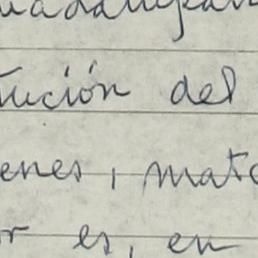 tución del
enes, mate
or es, en